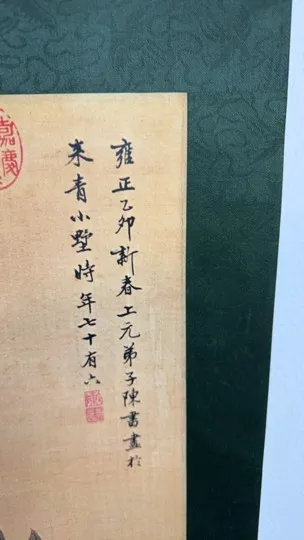 雍正乙卯新春上元弟子陳書畫於
來青小墅時年七十有六
嘉慶